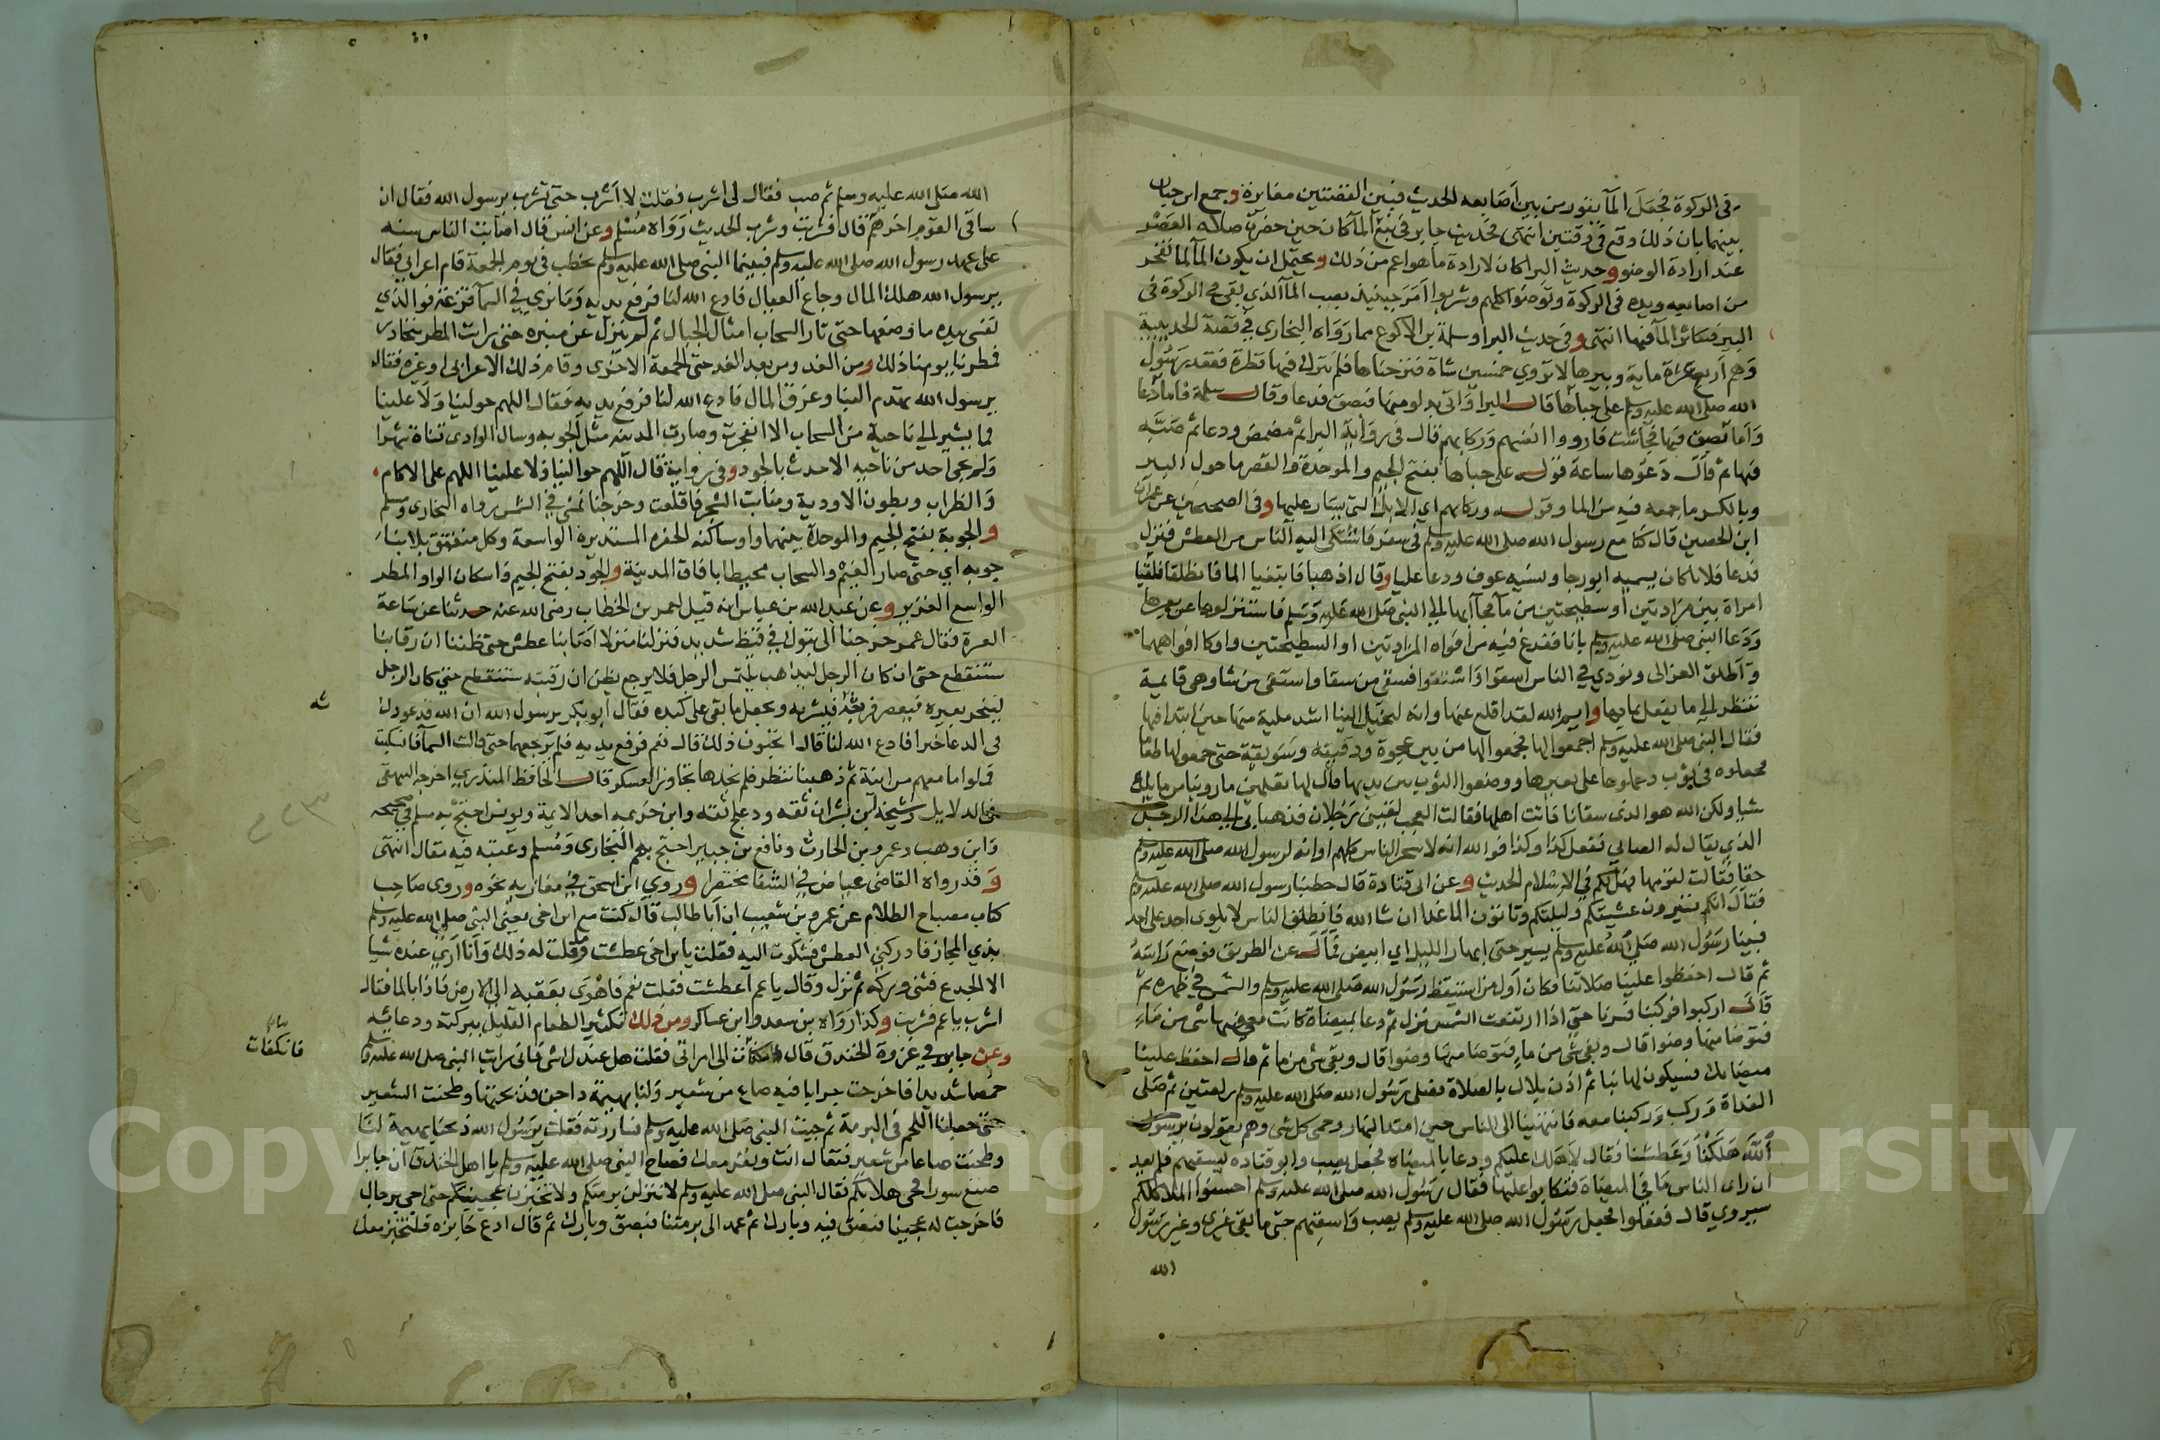 في الركوة فجعل الما يفور من بين اصابعه الحديث فبين القضتين مغايرة وجمع ابن حبان
بينهما بان ذلك وقع في وقتين انتهى فحديث جابر في نبع الما كان حين حضرت صلاه العصر
عند ارادة الوضو وحديث البرا كان لارادة ما هو اعم من ذلك ويحتمل ان يكون الما لما تفجر
من اصابعه ويده في الركوة وتوضوا كلهم وشربوا امر حينيذ بصب الما الذي بقي في الركوة في
البير فتكاثر الما فيها انتهى وفي حديث البرا وسلمة بن الاكوع مما رواه البخاري في قصة الحديبية
وهم اربع عشرة ماية وبيرها لا تروي خمسين شاة فنزحناها فلم نترك فيها قطرة فقعد رسول
الله صلى الله عليه وسلم على جباها قال البرا واتي بدلو منها فبصق فدعا وقال سلمة فاما دعا
واما بصق فيها فجاشت فارووا انفسهم وركابهم قال في رواية البرا ثم مضمض ودعا ثم صبه
فيها ثم قال دعوها ساعة قوله على جباها بفتح الجيم والموحدة والقصر ما حول البير
وبالكسر ما جمعه فيه من الما وقوله وركابهم اي الابل التي يسار عليها وفي الصحيحين عن عمران
ابن الحصين قال كنا مع رسول الله صلى الله عليه وسلم في سفر فاشتكى اليه الناس من العطش فنزل
فدعا فلانا كان يسميه ابو رجا ونسيه عوف ودعا عليا وقال اذهبا فابتغيا الما فانطلقا فلقيا
امراة بين مزادتين او سطيحتين من ما فجاآ بها الى النبي صلى الله عليه وسلم فاستنزلوها عن بعيرها
ودعا النبي صلى الله عليه وسلم بانا ففرغ فيه من افواه المزادتين او السطيحتين واوكا افواههما
واطلق العزالى ونودي في الناس اسقوا واستقوا فسقى من سقا واستقى من شا وهي قايمة
تنظر الى ما يفعل بمايها وايم الله لقد اقلع عنها وانه ليخيل الينا انها اشد ملية منها حين ابتدا فيها
فقال النبي صلى الله عليه وسلم اجمعوا لها فجمعوا لها من بين عجوة ودقيقة وسويقة حتى جمعوا لها طعاما
فجعلوه في ثوب وحملوها على بعيرها ووضعوا الثوب بين يديها قال لها تعلمين ما رزينا من مايك
شيا ولكن الله هو الذي سقانا فاتت اهلها فقالت العجب لقيني رجلان فذهبا بي الى هذا الرجل
الذي يقال له الصابي ففعل كذا وكذا فوالله انه لاسحر الناس كلهم او انه لرسول الله صلى الله عليه وسلم
حقا فقالت لقومها فهل لكم في الاسلام الحديث وعن ابي قتادة قال خطبنا رسول الله صلى الله عليه وسلم
فقال انكم تسيرون عشيتكم وليلتكم وتاتون الما غدا ان شا الله فانطلق الناس لا يلوى احد على احد
فبينا رسول الله صلى الله عليه وسلم يسير حتى ابهار الليل اي ابيض فمال عن الطريق فوضع راسه
ثم قال احفظوا علينا صلاتنا فكان اول من استيقظ رسول الله صلى الله عليه وسلم والشمس في ظهره ثم
قال اركبوا فركبنا فسرنا حتى اذا ارتفعت الشمس نزل ثم دعا بميضاة كانت معي فيها شي من ماء
فتوضا منها وضوا قال وبقي شي من ماء فتوضا منها وضوا قال وبقي شي من ما ثم قال احفظ علينا
ميضاتك فسيكون لها نبا ثم اذن بلال بالصلاة فصلى رسول الله صلى الله عليه وسلم ركعتين ثم صلى
الغداة وركب وركبنا معه فانتهينا الى الناس حين امتد النهار وحمى كل شي وهم يقولون يرسول
الله هلكنا وعطشنا فقال لا هلك عليكم ودعا بالميضاه فجعل يصب وابو قتاده يسقيهم فلم يعد
ان راى الناس ما في الميضاة فتكابوا عليها فقال رسول الله صلى الله عليه وسلم احسنوا الملا كلكم
سيروي قال ففعلوا فجعل رسول الله صلى الله عليه وسلم يصب واسقيهم حتى ما بقي غيري وغير رسول
الله
الله صلى الله عليه وسلم ثم صب فقال لي اشرب فقلت لا اشرب حتى تشرب يرسول الله فقال ان
ساقى القوم اخرهم قال فشربت وشرب الحديث رواه مسلم وعن انس قال اصابت الناس سنه
على عهد رسول الله صلى الله عليه وسلم فبينما النبي صلى الله عليه وسلم يخطب في يوم الجمعة قام اعرابي فقال
يرسول الله هلك المال وجاع العيال فادع الله لنا فرفع يديه وما نري في السما قزعة فوالذي
نفسي بيده ما وضعها حتى ثار السحاب امثال الجبال ثم لم ينزل عن منبره حتى رايت المطر يتحادر
فمطرنا يومنا ذلك ومن الغد ومن بعد الغد حتى الجمعة الاخرى وقام ذلك الاعرابي او غيره فقال
يرسول الله تهدم البنا وغرق المال فادع الله لنا فرفع يديه فقال اللهم حوالينا ولا علينا
فما يشير الى ناحية من السحاب الا انفرجت وصارت المدينه مثل الجوبه وسال الوادى قناة شهرا
ولم يجي احد من ناحيه الا حدث بالجود وفي رواية قال اللهم حوالينا ولا علينا اللهم على الاكام
والظراب وبطون الاودية ومنابت الشجر فاقلعت وخرجنا نمشي في الشمس رواه البخاري ومسلم
والجوبة بفتح الجيم والموحدة بينهما واو ساكنه الحفره المستديرة الواسعة وكل منفتق بلا بناء
جوبه اي حتى صار الغيم والسحاب محيطا بافاق المدينة والجود بفتح الجيم واسكان الواو المطر
الواسع الغزير وعن عبد الله بن عباس انه قيل لعمر بن الخطاب رضي الله عنه حدثنا عن ساعة
العسرة فقال عمر خرجنا الى تبوك في قيظ شديد فنزلنا منزلا اصابنا عطش حتى ظننا ان رقابنا
ستنقطع حتى ان كان الرجل ليذهب يلتمس الرجل فلا يرجع يظن ان رقبته ستنقطع حتى كان الرجل
لينحر بعيره فيعصر فرثه فيشربه ويجعل ما بقي على كبده فقال ابو بكر يرسول الله ان الله قد عودك
في الدعا خيرا فادع الله لنا قال اتحبون ذلك قال نعم فرفع يديه فلم يرجعهما حتى قالت السما فانسكبت
فملوا ما معهم من انية ثم ذهبنا ننظر فلم نجدها تجاوز العسكر قال الحافظ المنذري اخرجه البيهقي
في الدلايل وشيخه ابن بشران ثقه ودعلج ثقه وابن خزيمه احد الايمة ويونس احتج به مسلم في صحيحه
وابن وهب وعمرو بن الحارث ونافع بن جبير احتج بهم البخاري ومسلم وعتبه فيه مقال انتهى
وقد رواه القاضي عياض في الشفا مختصرا وروي ابن اسحق في مغازيه نحوه وروى صاحب
كتاب مصباح الظلام عن عمرو بن شعيب ان ابا طالب قال كنت مع ابن اخي يعني النبي صلى الله عليه وسلم
بذي المجاز فادركني العطش فشكوت اليه فقلت يا بن اخي عطشت وما قلت له ذلك وانا اري عنده شيا
الا الجدع فثني وركه ثم نزل وقال يا عم اعطشت فقلت نعم فاهوى بعقبه الى الارض فاذا بالما فقال
اشرب يا عم فشربت وكذا رواه بن سعد وابن عساكر ومن ذلك تكثير الطعام القليل ببركته ودعائه
وعن جابر في غزوة الخندق قال فانكفات الى امراتي فقلت هل عندك شي فاني رايت النبي صلى الله عليه وسلم
خمصا شديدا فاخرجت جرابا فيه صاع من شعير ولنا بهيمة داجن فذبحتها وطحنت الشعير
حتى جعلنا اللحم في البرمة ثم جيت النبي صلى الله عليه وسلم فساررته فقلت يرسول الله ذبحنا بهيمة لنا
وطحنت صاعا من شعير فتعال انت ونفر معك فصاح النبي صلى الله عليه وسلم يا اهل الخندق ان جابرا
صنع سورا فحي هلا بكم فقال النبي صلى الله عليه وسلم لا تنزلن برمتكم ولا تخبزن عجينكم حتى اجي فجال
فاخرجت له عجينا فبصق فيه وبارك ثم عمد الى برمتنا فبصق وبارك ثم قال ادع خابزه فلتخبز معك
فانكفات
Copy King University